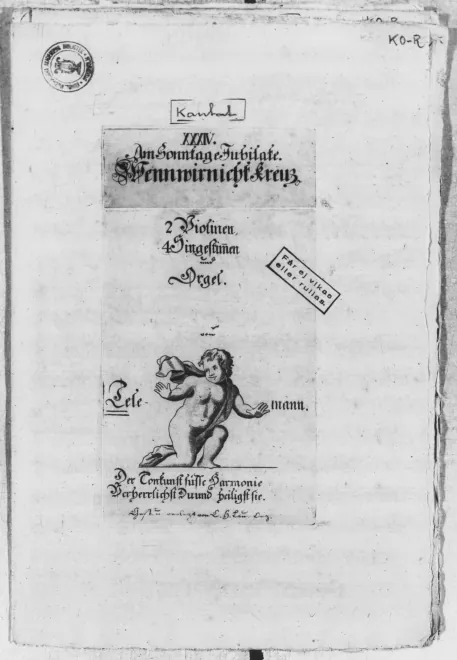 KO-R
Kantat
XXXIV.
Am Sonntage Jubilate.
Wenn wir nicht Kreuz
2 Violinen.
4 Singestim̄en
und
Orgel.
Får ej vikas
eller rullas.
von
Tele-
mann.
Der Tonkunst süsse Harmonie
Verherrlichst Du und heiligst sie.